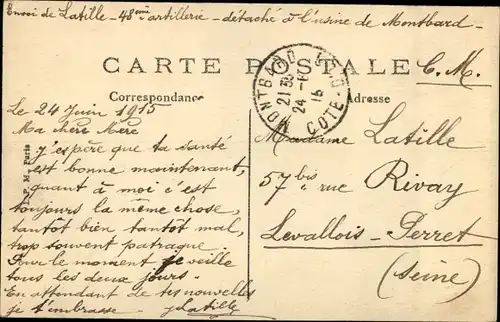 Envoi de Latille - 48ème artillerie - détaché à l'usine de Montbard -
CARTE POSTALE
C. M.
Correspondance
Adresse
MONTBARD
CÔTE-D'OR
21 30
24 - 6
15
Le 24 Juin 1915
Ma chère Mère
j'espère que ta santé
est bonne maintenant,
quant à moi c'est
toujours la même chose,
tantôt bien tantôt mal,
trop souvent patraque.
Pour le moment je veille
tous les deux jours.
En attendant de tes nouvelles
je t'embrasse - Latille
Madame Latille
57 bis rue Rivay
Levallois-Perret
(Seine)
P. M. Paris